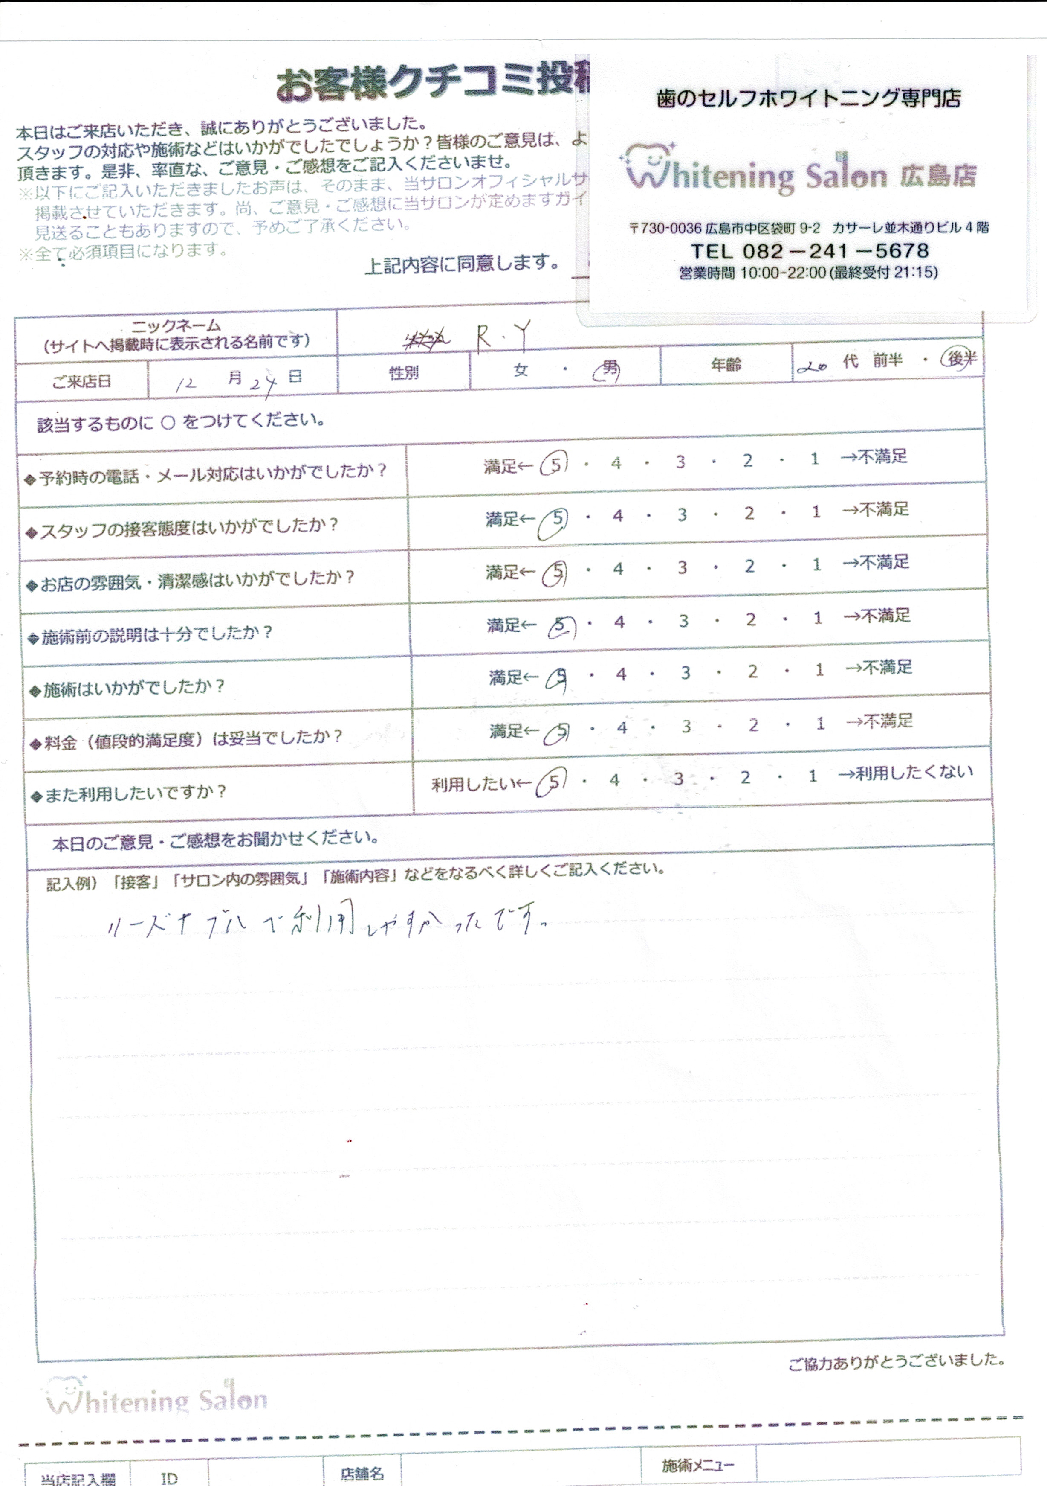 お客様クチコミ投稿
本日はご来店いただき、誠にありがとうございました。
スタッフの対応や施術などはいかがでしたでしょうか？皆様のご意見は、よ
頂きます。是非、率直な、ご意見・ご感想をご記入くださいませ。
※以下にご記入いただきましたお声は、そのまま、当サロンオフィシャルサ
掲載させていただきます。尚、ご意見・ご感想に当サロンが定めますガイ
見送ることもありますので、予めご了承ください。
※全て必須項目になります。
上記内容に同意します。
歯のセルフホワイトニング専門店
Whitening Salon 広島店
〒730-0036 広島市中区袋町 9-2 カサーレ並木通りビル 4 階
TEL 082－241－5678
営業時間 10:00-22:00 (最終受付 21:15)
ニックネーム
(サイトへ掲載時に表示される名前です) R.Y
ご来店日 12 月 24 日 性別 女 ・ 男 年齢 20 代 前半 ・ 後半
該当するものに ○ をつけてください。
◆予約時の電話・メール対応はいかがでしたか？ 満足← 5 ・ 4 ・ 3 ・ 2 ・ 1 →不満足
◆スタッフの接客態度はいかがでしたか？ 満足← 5 ・ 4 ・ 3 ・ 2 ・ 1 →不満足
◆お店の雰囲気・清潔感はいかがでしたか？ 満足← 5 ・ 4 ・ 3 ・ 2 ・ 1 →不満足
◆施術前の説明は十分でしたか？ 満足← 5 ・ 4 ・ 3 ・ 2 ・ 1 →不満足
◆施術はいかがでしたか？ 満足← 5 ・ 4 ・ 3 ・ 2 ・ 1 →不満足
◆料金（値段的満足度）は妥当でしたか？ 満足← 5 ・ 4 ・ 3 ・ 2 ・ 1 →不満足
◆また利用したいですか？ 利用したい← 5 ・ 4 ・ 3 ・ 2 ・ 1 →利用したくない
本日のご意見・ご感想をお聞かせください。
記入例）「接客」「サロン内の雰囲気」「施術内容」などをなるべく詳しくご記入ください。
リーズナブルで利用しやすかったです。
ご協力ありがとうございました。
Whitening Salon
当店記入欄 ID 店舗名 施術メニュー